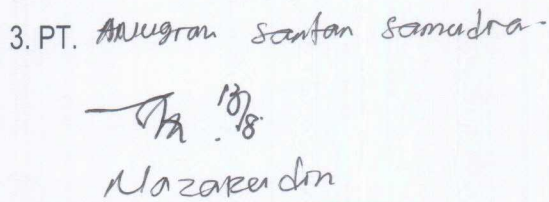 3. PT. Anugrah Santan Samudra.
13/8.
Nazarudin